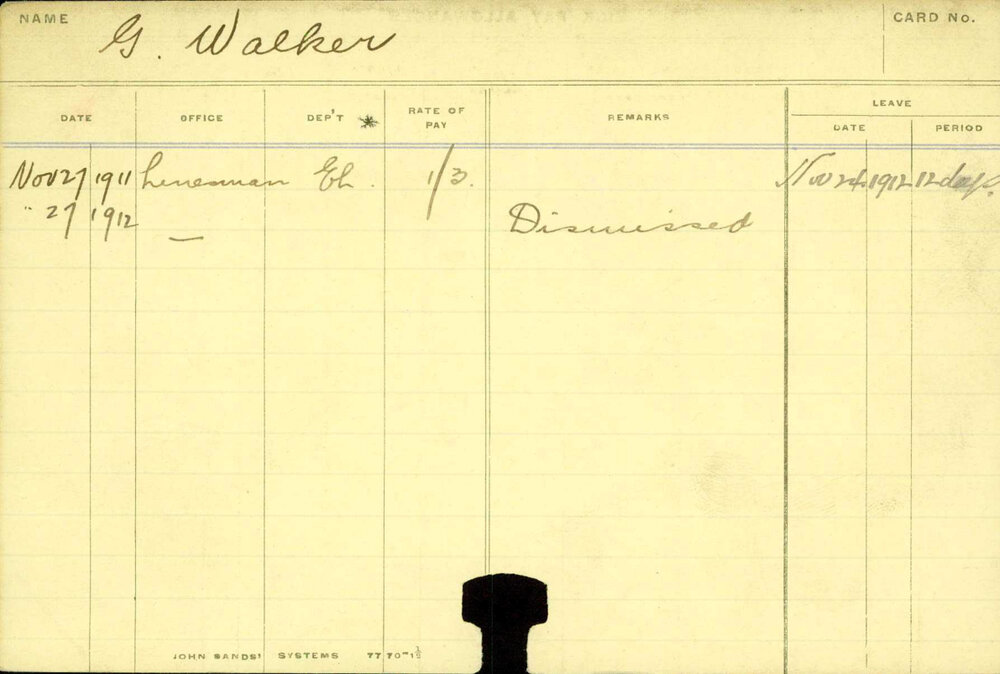 NAME G. Walker CARD No.
DATE OFFICE DEP'T * RATE OF PAY REMARKS LEAVE
DATE PERIOD
Nov 27 1911 Linesman El. 1/3. Nov 24 1912 12 days.
" 27 1912 — Dismissed
JOHN SANDS' SYSTEMS 7770